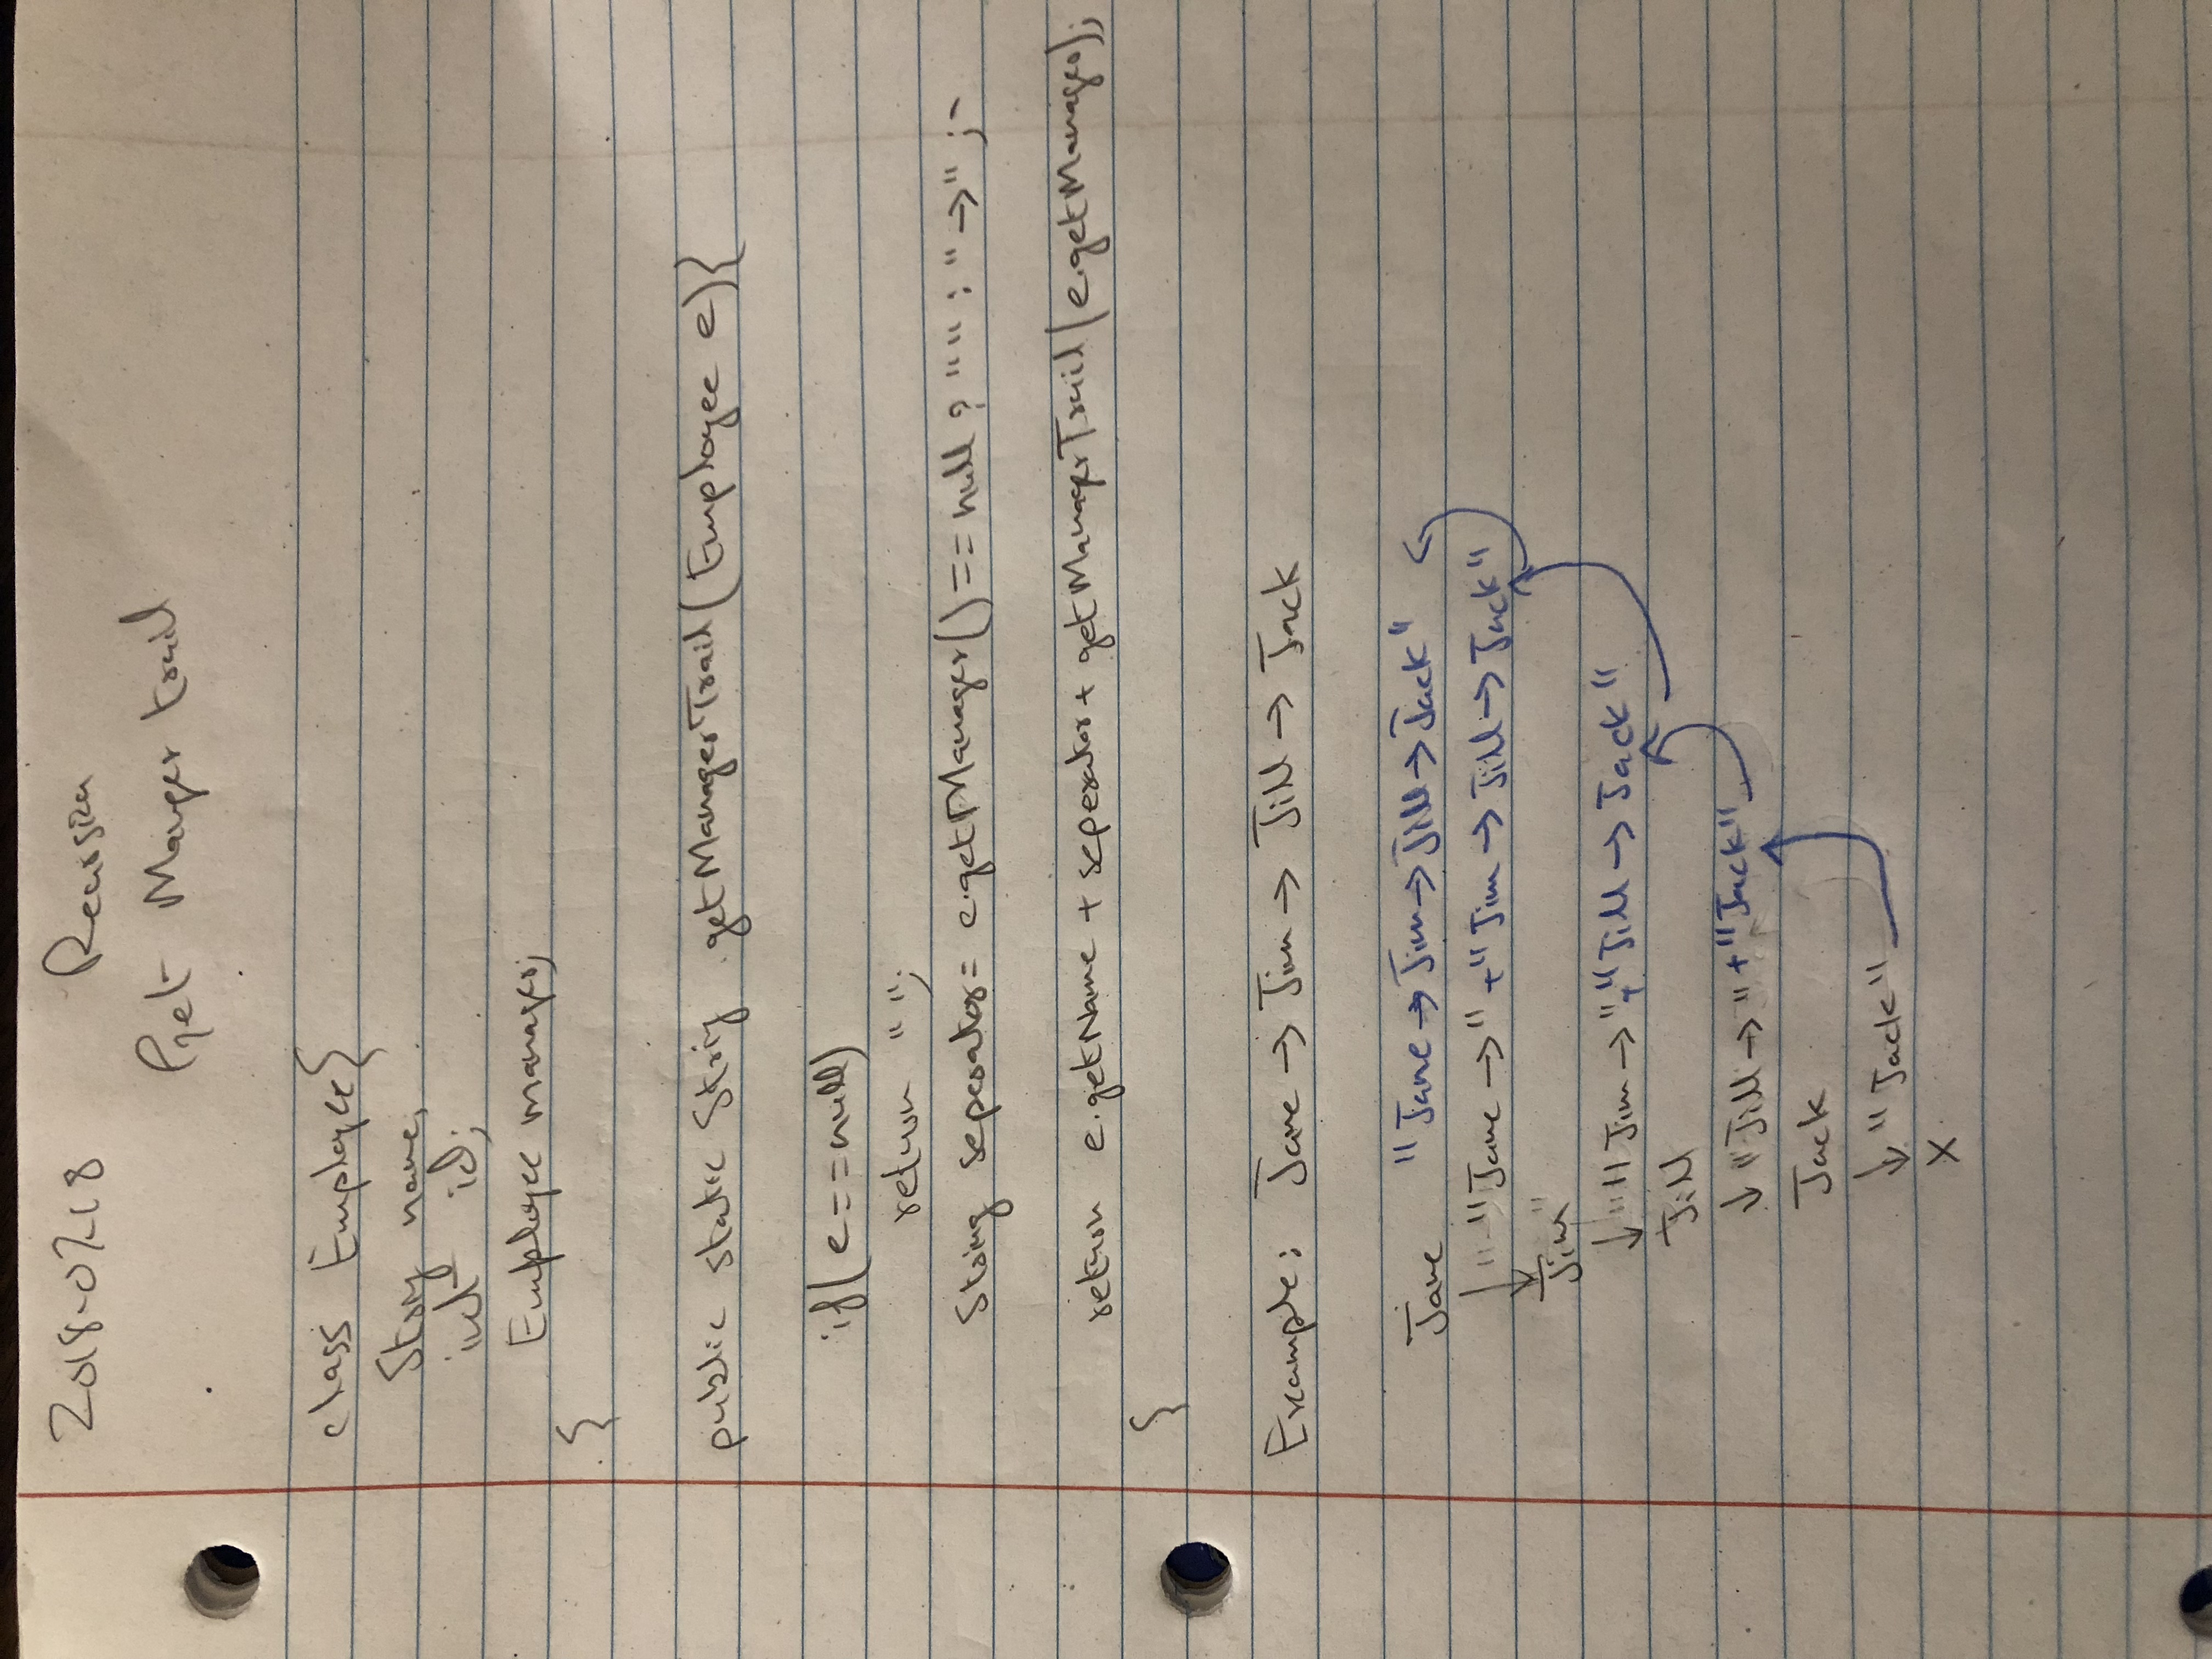 2018-07-18 Recursion
Get Manger trail
class Employee{
String name;
int id;
Employee manager;
}
public static String getManagerTrail(Employee e){
if(e==null)
return "";
String seperator= e.getManager()==null ? "" : "->";
return e.getName + seperator + getManagerTrail(e.getManager);
}
Example: Jane -> Jim -> Jill -> Jack
Jane "Jane -> Jim -> Jill -> Jack"
"Jane ->" + "Jim -> Jill -> Jack"
Jim
"Jim ->" + "Jill -> Jack"
Jill
"Jill ->" + "Jack"
Jack
"Jack"
X